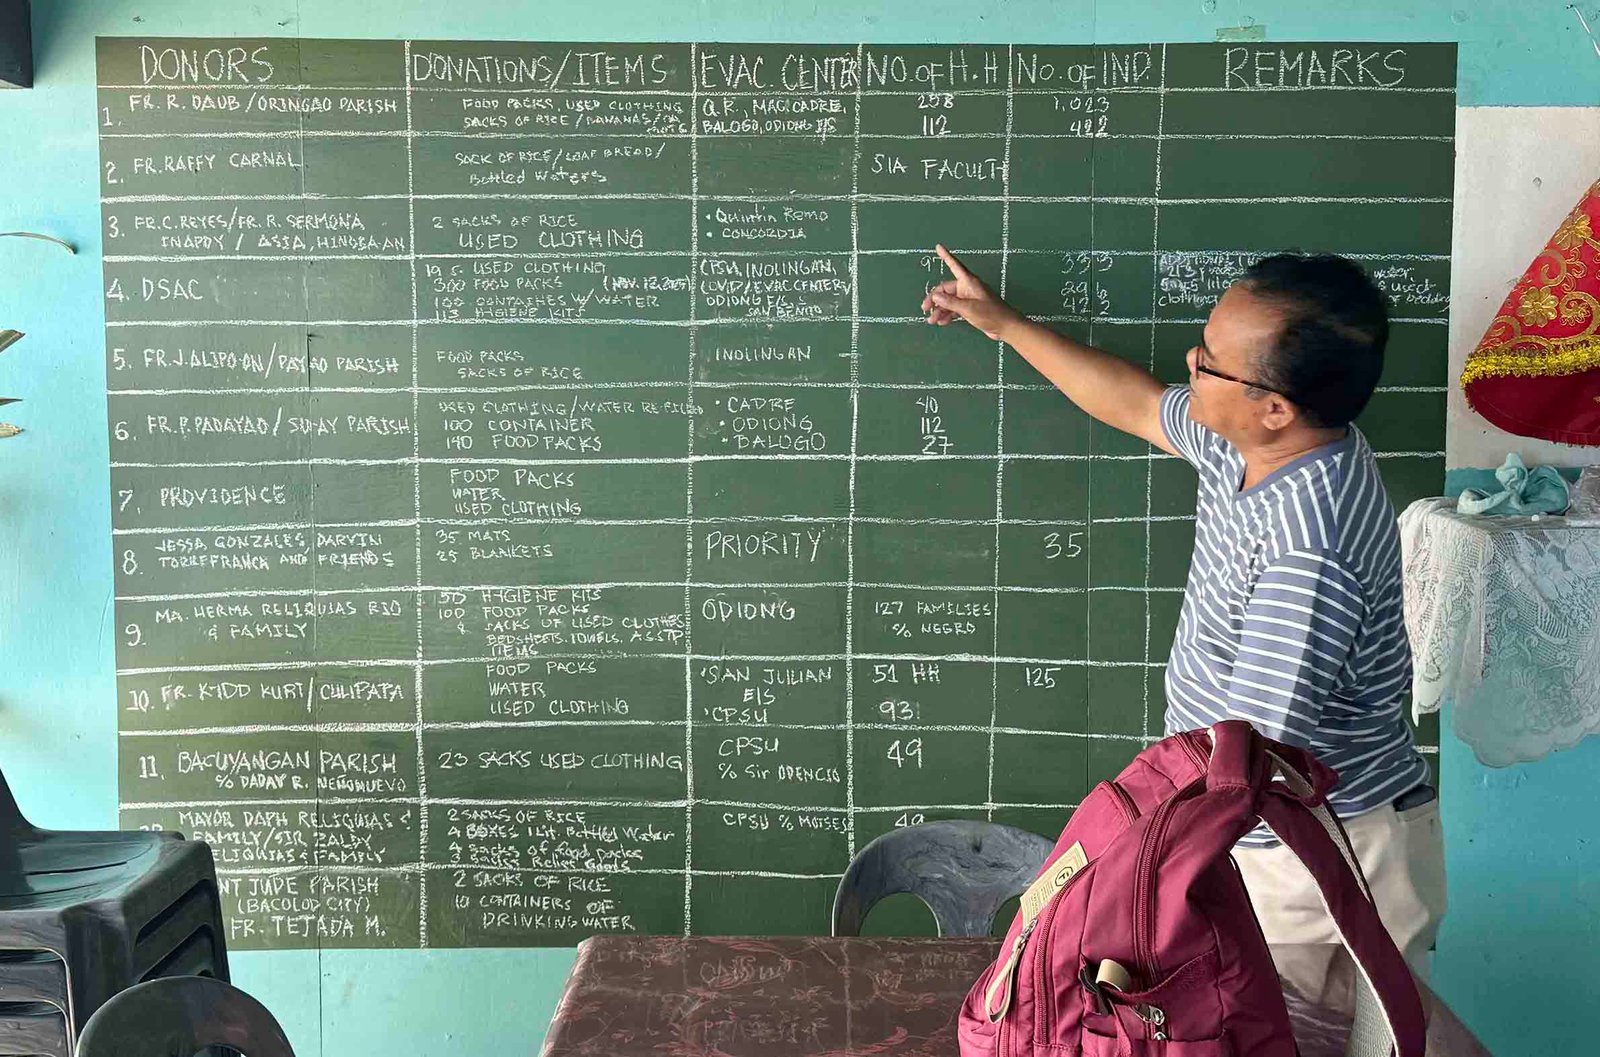 DONORS DONATIONS/ITEMS EVAC. CENTER NO. OF H.H NO. OF IND. REMARKS
1. FR. R. DAUB/ORINGAO PARISH
FOOD PACKS, USED CLOTHING
SACKS OF RICE/BANANAS/
Q.R., MAG. CADRE,
BALOGO, ODIONG E/S
258
112
1,023
422
2. FR. RAFFY CARNAL
SACK OF RICE/LOAF BREAD/
Bottled Waters
SIA FACULT
3. FR. C. REYES/FR. R. SERMONA
INAPOY / ASIA, HINOBAAN
2 SACKS OF RICE
USED CLOTHING
• Quintin Remo
• CONCORDIA
4. DSAC
19 S. USED CLOTHING
300 FOOD PACKS (NOV. 12, 2025)
100 CONTAINES W/WATER
113 HYGIENE KITS
CPSU, INOLINGAN,
COVID/EVAC.CENTER
ODIONG E/S
SAN BENITO
97
333
296
422
5. FR. J. ALIPO-ON/PAYAO PARISH
FOOD PACKS
SACKS OF RICE
INOLINGAN
6. FR. P. PADAYAO/SUAY PARISH
USED CLOTHING/WATER RE-FILLED
100 CONTAINER
140 FOOD PACKS
• CADRE
• ODIONG
• BALOGO
40
112
27
7. PROVIDENCE
FOOD PACKS
WATER
USED CLOTHING
8. JESSA GONZALES, DARVIN
TORREFRANCA AND FRIENDS
35 MATS
25 BLANKETS
PRIORITY
35
9. MA. HERMA RELIQUIAS RIO
& FAMILY
50 HYGIENE KITS
100 FOOD PACKS
8 SACKS OF USED CLOTHES
BEDSHEETS, TOWELS, ASSTD
ITEMS
ODIONG
127 FAMILIES
% NEGRO
10. FR. KIDD KURT/CULIPAPA
FOOD PACKS
WATER
USED CLOTHING
'SAN JULIAN
E/S
'CPSU
51 HH
93
125
11. BACUYANGAN PARISH
% DADAY R. NEÑONUEVO
23 SACKS USED CLOTHING
CPSU
% Sir ODENCIO
49
MAYOR DAPH RELIQUIAS &
FAMILY/SIR ZALDY
RELIQUIAS & FAMILY
2 SACKS OF RICE
4 BOXES 1 lit. Bottled Water
4 Sacks of food packs
3 Sacks Relief Goods
CPSU % MOISES
49
NT JUDE PARISH
(BACOLOD CITY)
FR. TEJADA M.
2 SACKS OF RICE
10 CONTAINERS OF
DRINKING WATER